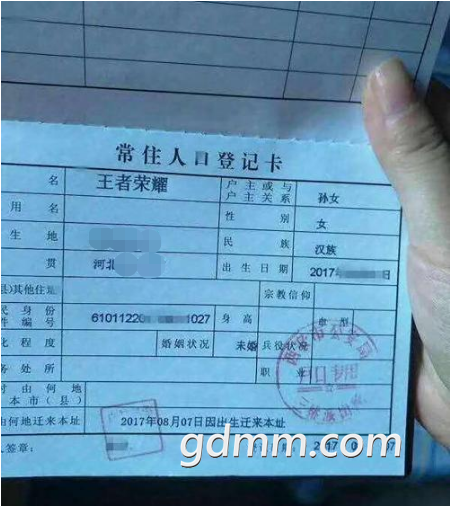 常住人口登记卡
名 王者荣耀 户主或与户主关系 孙女
用名 性别 女
生地 民族 汉族
贯 河北 出生日期 2017 日
县)其他住址 宗教信仰
民身份
件编号 6101122 1027 身高 血型
化程度 婚姻状况 未婚 兵役状况
务处所 职业
由何地
本市(县)
由何地迁来本址 2017年08月07日因出生迁来本址
人签章: 2017
gdmm.com